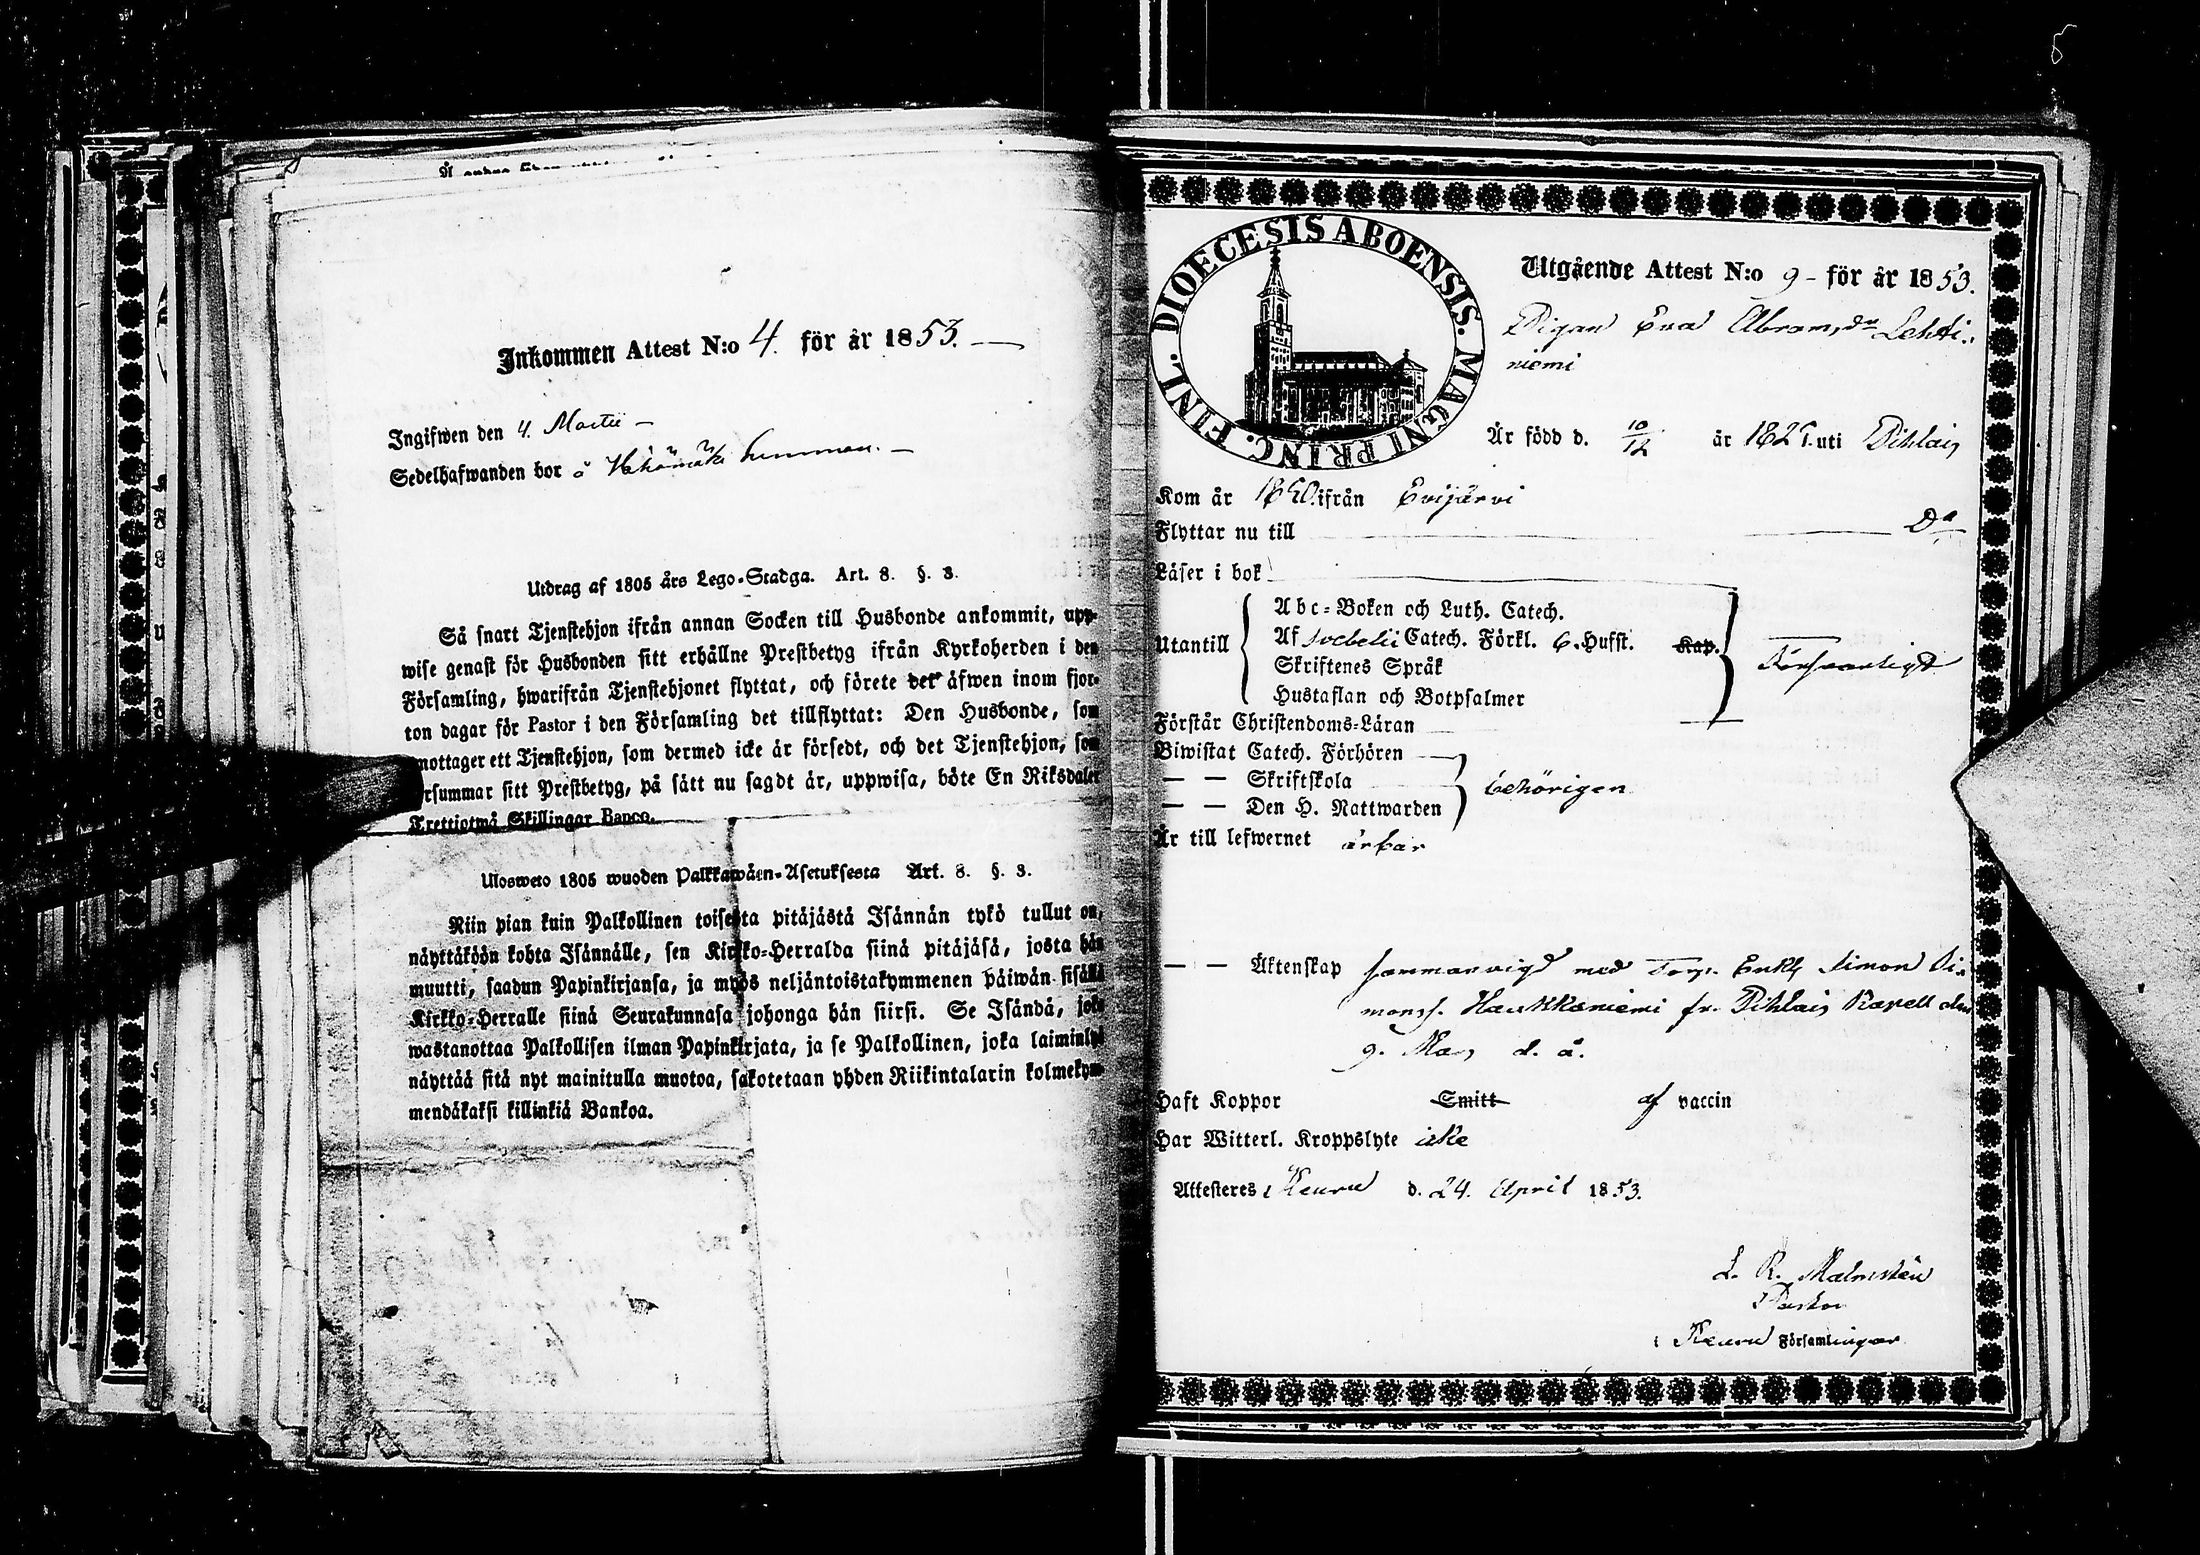 5
Inkommen Attest N:o 4. för år 1853.
Ingifwen den 4. Martii
Sedelhafwanden bor å Vähämäki hemman.
Utdrag af 1805 års Lego-Stadga. Art. 8. §. 3.
Så snart Tjenstehjon ifrån annan Socken till Husbonde ankommit, upp-
wise genast för Husbonden sitt erhållne Prestbetyg ifrån Kyrkoherden i den
Församling, hwarifrån Tjenstehjonet flyttat, och förete det äfwen inom fjor-
ton dagar för Pastor i den Församling det tillflyttat: Den Husbonde, som
mottager ett Tjenstehjon, som dermed icke är försedt, och det Tjenstehjon, som
försummar sitt Prestbetyg, på sätt nu sagdt är, uppwisa, böte En Riksdaler
Trettiotwå Skillingar Banco.
Ulosweto 1805 wuoden Palkkawäen-Asetuksesta Art. 8. §. 3.
Niin pian kuin Palkollinen toisesta pitäjästä Isännän tykö tullut on,
näyttäköön kohta Isännälle, sen Kirkko-Herralda siinä pitäjäsä, josta hän
muutti, saadun Papinkirjansa, ja myös neljäntoistakymmenen päiwän sisällä
Kirkko-Herralle siinä Seurakunnasa johonga hän siirsi. Se Isändä, joka
wastanottaa Palkollisen ilman Papinkirjata, ja se Palkollinen, joka laiminlyö
näyttää sitä nyt mainitulla muotoa, sakotetaan yhden Riikintalarin kolmekym-
mendäkaksi killinkiä Bankoa.
DIOECESIS ABOENSIS. MAGNI PRINC. FINL.
Utgående Attest N:o 9 för år 1853.
Pigan Eva Abramsdr Lehti-
niemi
Är född d. 10/12 år 1825 uti Pihlais
Kom år 1850 ifrån Evijärvi
Flyttar nu till Do
Läser i bok
Utantill
Abc-Boken och Luth. Catech.
Af Svebelii Catech. Förkl. 6. Hufst. Kap.
Skriftenes Språk
Hustaflan och Botpsalmer
Försvarligt
Förstår Christendoms-Läran
Biwistat Catech. Förhören
— — Skriftskola
— — Den H. Nattwarden
behörigen
Är till lefwernet ärbar
— — Äktenskap sammanvigd med Torp. Enkl. Simon Si-
monss. Haukkaniemi fr. Pihlais Kapell den
9. Mars d. å.
Haft Koppor Smitt af vaccin
Har Witterl. Kroppslyte icke
Attesteres i Keuru d. 24. April 1853.
L. R. Malmstén
Pastor
i Keuru Församlingar